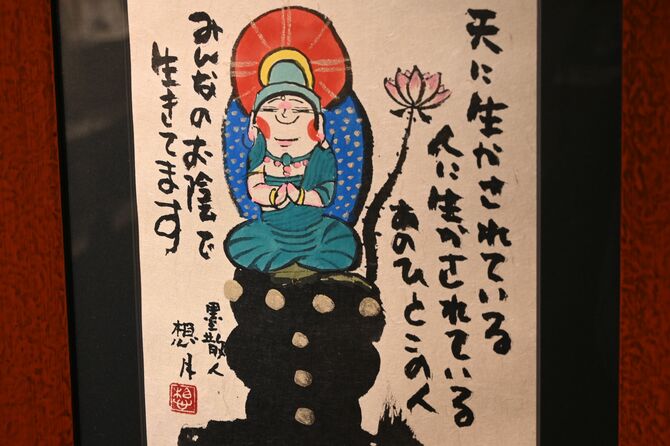 天に生かされている
人に生かされている
あのひとこの人
みんなのお陰で
生きてます
墨散人
想月